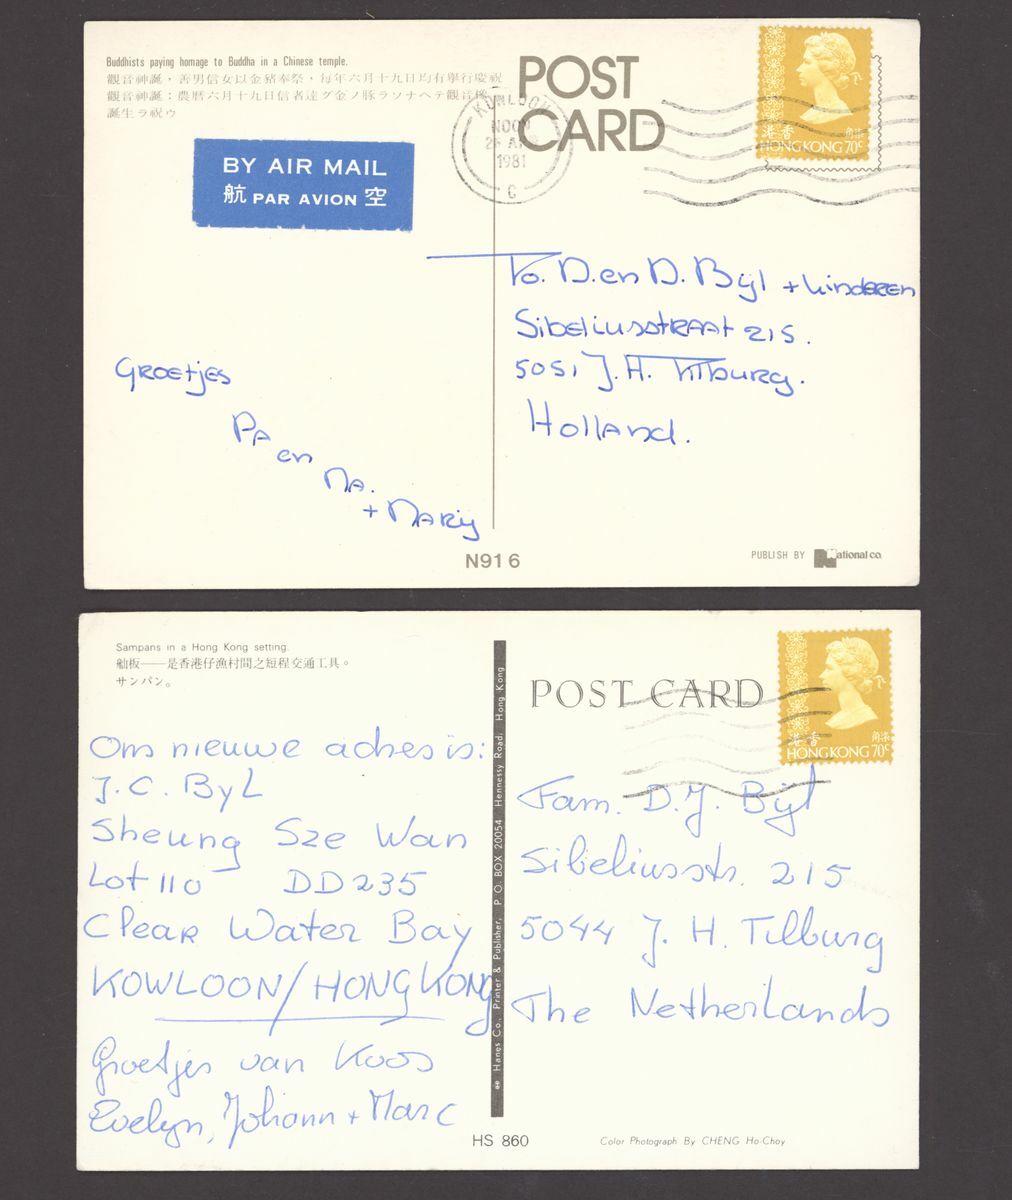 Buddhists paying homage to Buddha in a Chinese temple.
觀音神誕，善男信女以金豬奉祭，每年六月十九日均有舉行慶祝
觀音神誕：農曆六月十九日信者達グ金ノ豚ラソナヘテ觀音様
誕生ラ祝ゥ
POST
CARD
KOWLOON
NOON
1981
C
港香
角柒
HONG KONG 70c
BY AIR MAIL
航 PAR AVION 空
To. D. en D. Bijl + kinderen
Sibeliusstraat 215.
5051 J.H. Tilburg.
Holland.
Groetjes
Pa
en
Ma.
+ Marij
N91 6
PUBLISH BY National co.
Sampans in a Hong Kong setting.
舢板——是香港仔漁村間之短程交通工具。
サンパン。
POST CARD
港香
角柒
HONG KONG 70c
Ons nieuwe adres is:
J.C. Byl
Sheung Sze Wan
Lot 110 DD 235
Clear Water Bay
KOWLOON/HONG KONG
Groetjes van Koos
Evelyn, Johann + Marc
Hanes Co., Printer & Publisher, P.O. BOX 20054 Hennessy Road, Hong Kong
Fam. D.J. Bijl
Sibeliusstr. 215
5044 J. H. Tilburg
The Netherlands
HS 860
Color Photograph By CHENG Ho-Choy